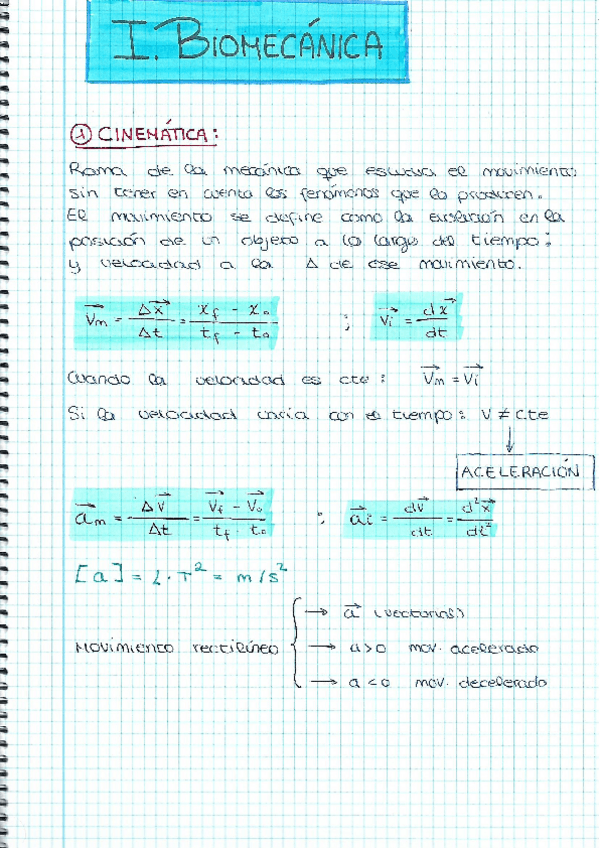 I. BIOMECÁNICA
① CINEMÁTICA:
Rama de la mecánica que estudia el movimiento;
sin tener en cuenta los fenómenos que lo producen.
El movimiento se define como la en la
posición de un objeto a lo largo del tiempo;
y velocidad a la Δ de ese movimiento.
v⃗m = Δx⃗/Δt = (xf - x₀)/(tf - t₀) ; v⃗i = dx⃗/dt
Cuando la velocidad es cte: v⃗m = v⃗i
Si la velocidad varía con el tiempo: v ≠ cte
ACELERACIÓN
a⃗m = Δv⃗/Δt = (v⃗f - v⃗₀)/(tf - t₀) ; a⃗i = dv⃗/dt = d²x⃗/dt²
[a] = L·T² = m/s²
→ a⃗ (vectorial)
Movimiento rectilíneo { → a>0 mov. acelerado
→ a<0 mov. decelerado